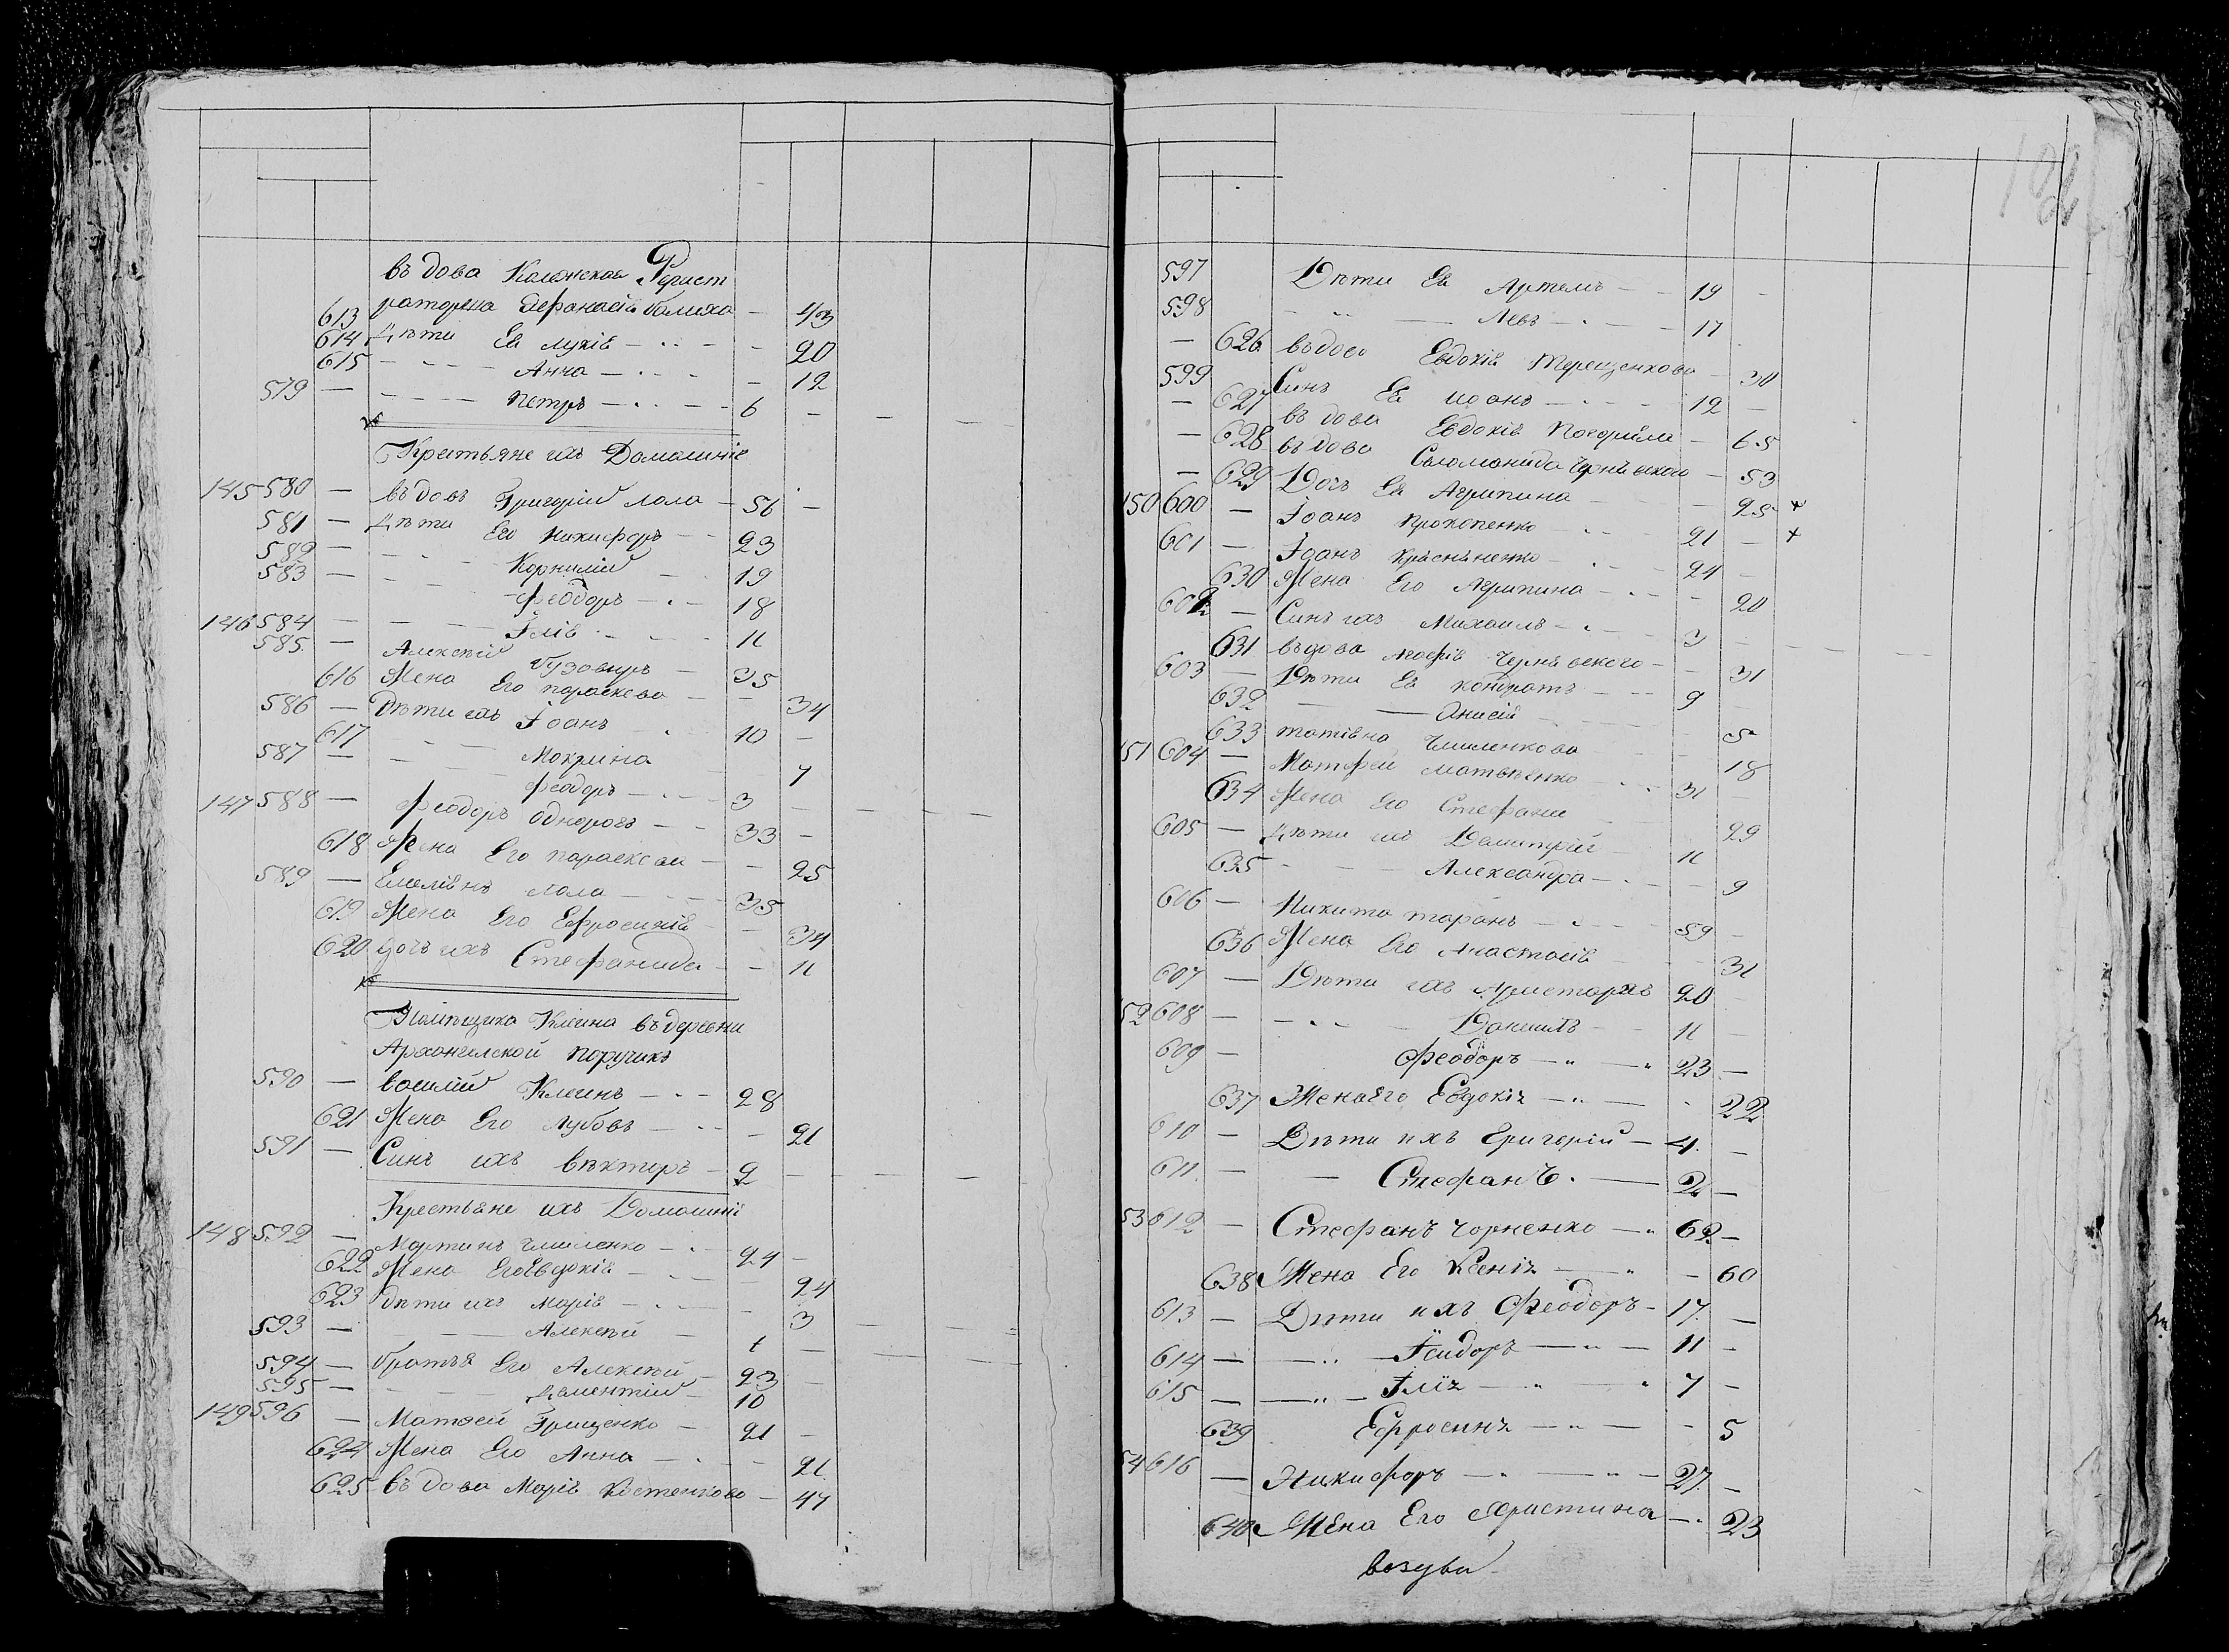 въ дова Колежская Регист
613 раторша Афанасія Балиха - 43
614 Дѣти Ея Лукія - 20
615 Анна - 12
579 - Петръ - 6 -
Крестьяне ихъ Домашніе
145 580 - въдовъ Григорій Лола - 56 -
581 - Дѣти Его Никифоръ - 23
582 - Корнилій 19
583 - Феодоръ - 18
146 584 - Ілія - 11
585 - Алексѣй - 35
616 Жена Его Параскева - 34
586 - Дѣти ихъ Іоанъ 10 -
617 Мокрина 7
587 - Феодоръ - 3 -
147 588 - Феодоръ Однорогъ - 33 -
618 Жена Его Параскева - 25
589 - Емеліянъ Лола - 35
619 Жена Его Ефросинія - 34
620 дочь ихъ Стефанида - 11
Поміщика Клеина въ деревни
Архангелской Поручикъ
590 - василій Клеинъ - 28
621 Жена Его Лубовъ - 21
591 - Синъ ихъ вѣкторъ - 2 -
Крестьяне ихъ Домашніе
148 592 - Мартинъ Чмиленко - 24 -
622 Жена Его Евдокія - 24
623 Дѣти ихъ Марія - 3
593 - Алексѣй - 1 -
594 - братья Его Алексѣй - 23 -
595 - 10
149 596 - Матвей Грищенко - 21 -
624 Жена Его Анна - 21
625 въ дова Марія Костенкова - 47
597 Дѣти Ея Артемъ - 19 -
598 Левъ - 17
- 626 въдова Евдокія Терещенкова - 30
599 Синъ Ея Иоанъ - 12 -
- 627 въ дова Евдокія Погорила - 65
- 628 въ дова Соломонида - 53
- 629 Дочь Ея Агрипина - 25 +
150 600 - Іоанъ Прокопенко - 21 - +
601 - Іоанъ Красняненко - 24 -
630 Жена Его Агрипина - 20
602 - Синъ ихъ Михаилъ - 3 -
631 въдова Агафія Чернявского - 31
603 - Дѣти Ея Кондратъ - 9 -
632 Анисія 5
633 татіяна Чмиленкова 18
151 604 - Матфей Матвѣенко 31 -
634 Жена Его Стефани 29
605 - Дѣти ихъ Димитрій - 11
635 Александра - 9
606 - Никита таранъ - 59 -
636 Жена Его Анастасія 31
607 - Дѣти ихъ Аристархъ 20 -
52 608 - Даниилъ 11 -
609 - Феодоръ - 23 -
637 Жена Его Евдокія - 22
610 - Дѣти ихъ Григорій - 4 -
611 - Стефанъ - 2 -
53 612 - Стефанъ Чорненко - 62 -
638 Жена Его Ксенія - 60
613 - Дѣти ихъ Феодоръ - 17 -
614 - Ісидоръ - 11 -
615 - Ілія - 7 -
639 Ефросиня - 5
54 616 - Никифоръ - 27 -
640 Жена Его Христина - 23